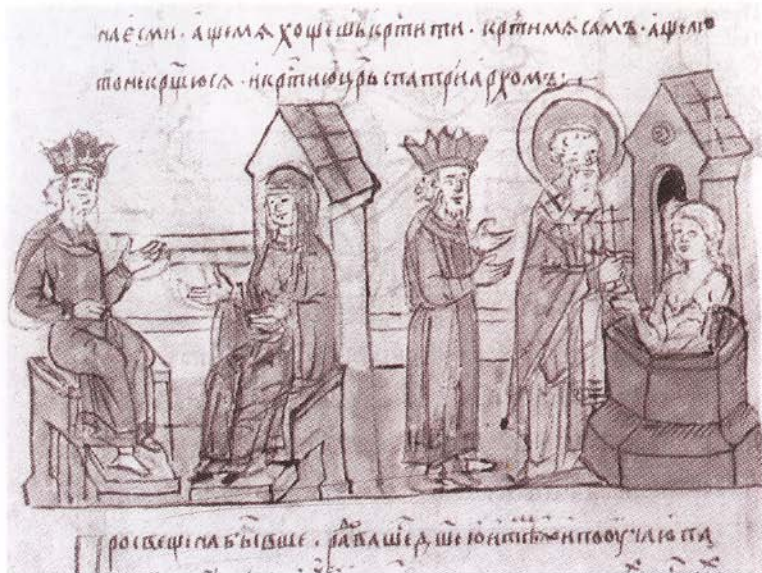 на есми · а ще мѧ хощешь крⷭ҇тити · крⷭ҇ти мѧ самъ · аще ли
то не крщ҃юсѧ · и крⷭ҇ти ю цр҃ь с патриархомъ :
Просвещена бывше · раⷣвашеⷭ д҃шею и тѣлоⷨ и пооучаю па